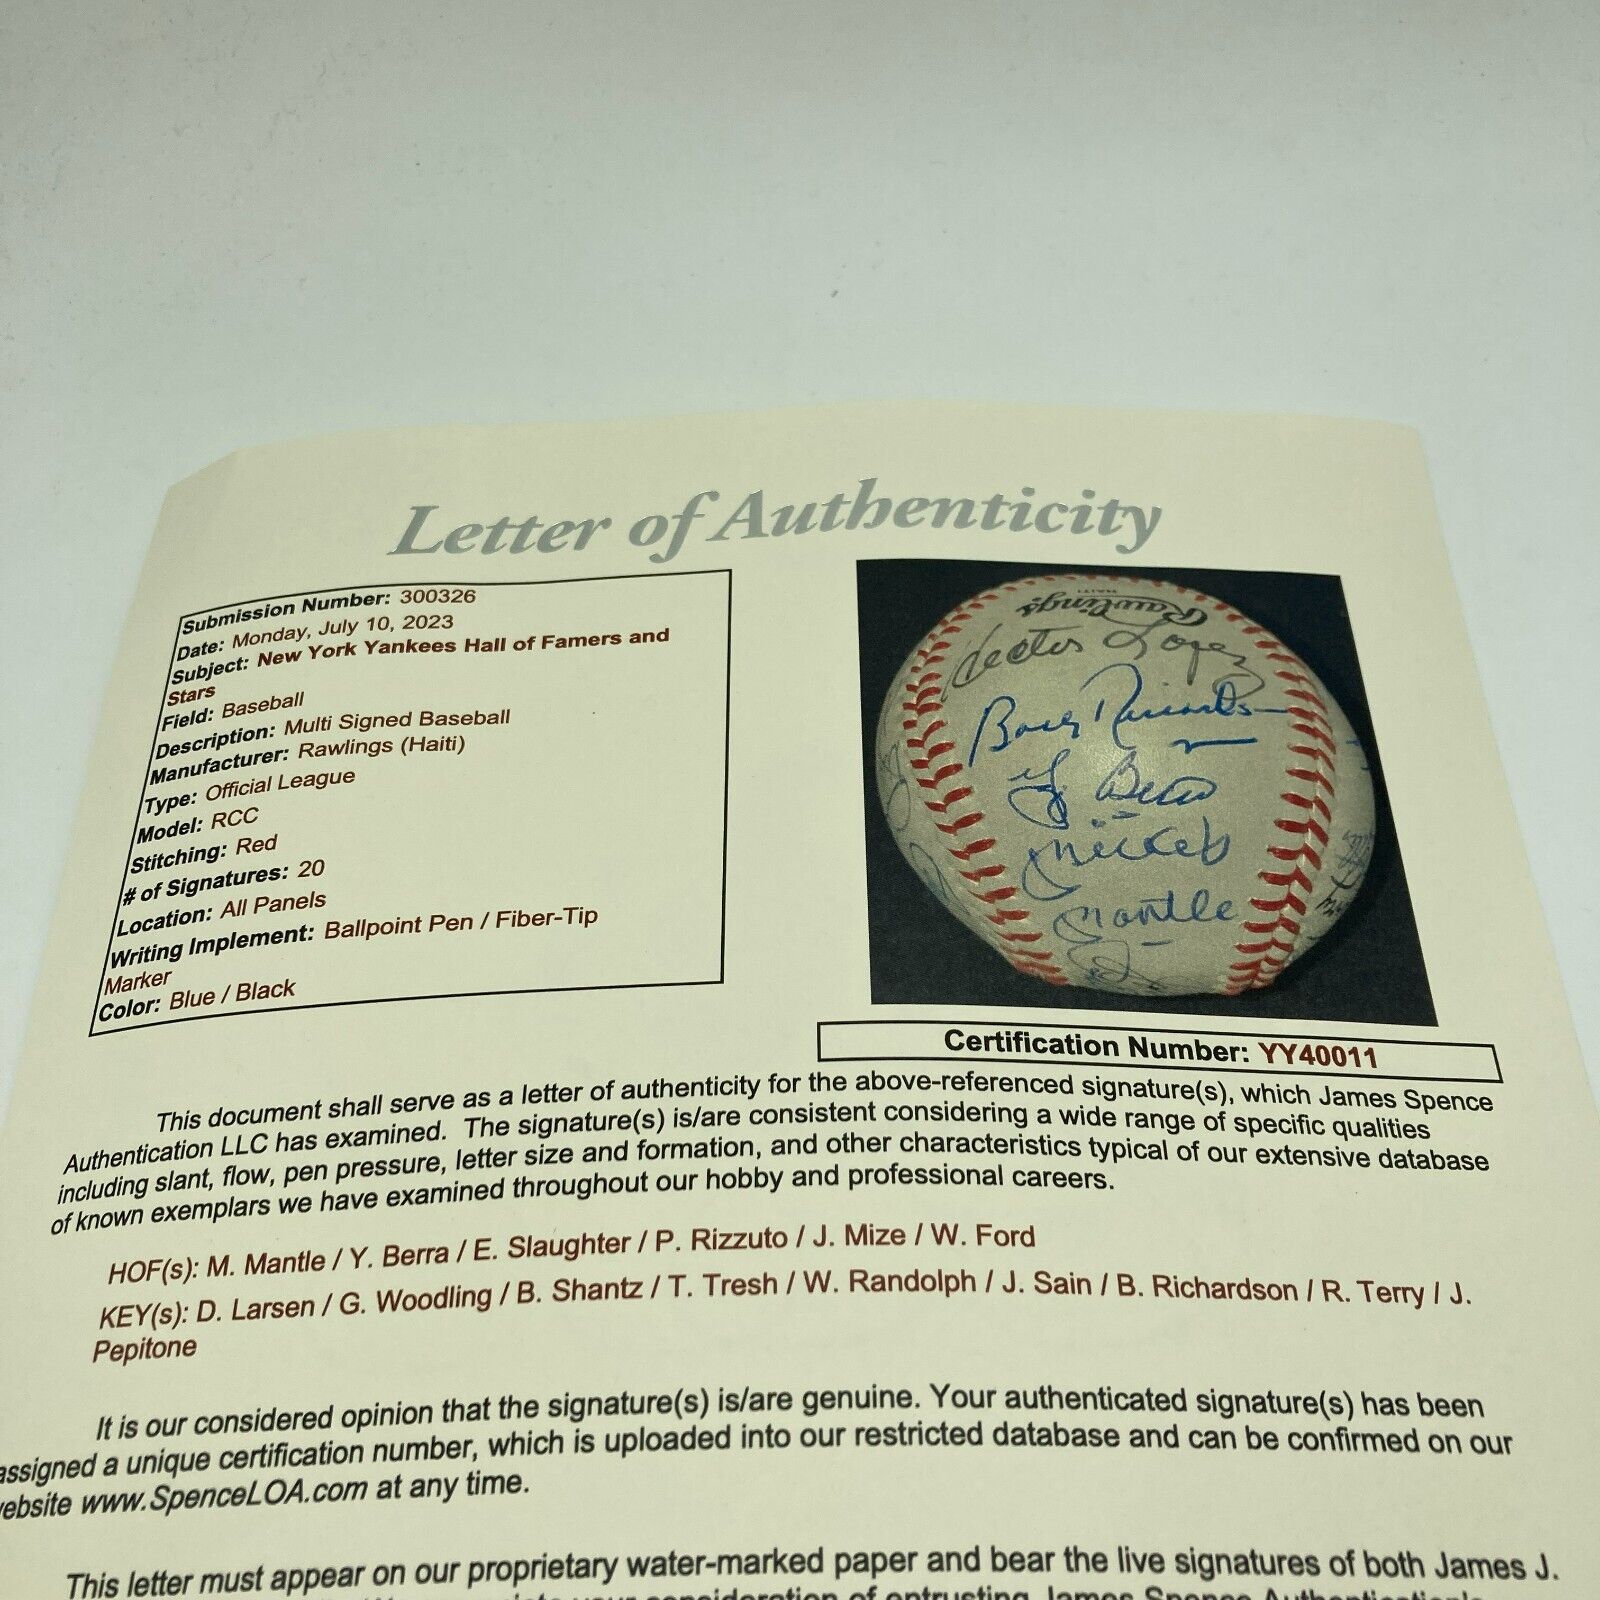 Letter of Authenticity
Submission Number: 300326
Date: Monday, July 10, 2023
Subject: New York Yankees Hall of Famers and
Stars
Field: Baseball
Description: Multi Signed Baseball
Manufacturer: Rawlings (Haiti)
Type: Official League
Model: RCC
Stitching: Red
# of Signatures: 20
Location: All Panels
Writing Implement: Ballpoint Pen / Fiber-Tip
Marker
Color: Blue / Black
Rawlings
HAITI
Hector Lopez
Bobby Richardson
Yogi Berra
Mickey
Mantle
Certification Number: YY40011
This document shall serve as a letter of authenticity for the above-referenced signature(s), which James Spence
Authentication LLC has examined. The signature(s) is/are consistent considering a wide range of specific qualities
including slant, flow, pen pressure, letter size and formation, and other characteristics typical of our extensive database
of known exemplars we have examined throughout our hobby and professional careers.
HOF(s): M. Mantle / Y. Berra / E. Slaughter / P. Rizzuto / J. Mize / W. Ford
KEY(s): D. Larsen / G. Woodling / B. Shantz / T. Tresh / W. Randolph / J. Sain / B. Richardson / R. Terry / J.
Pepitone
It is our considered opinion that the signature(s) is/are genuine. Your authenticated signature(s) has been
assigned a unique certification number, which is uploaded into our restricted database and can be confirmed on our
website www.SpenceLOA.com at any time.
This letter must appear on our proprietary water-marked paper and bear the live signatures of both James J.
your consideration of entrusting James Spence Authentication's